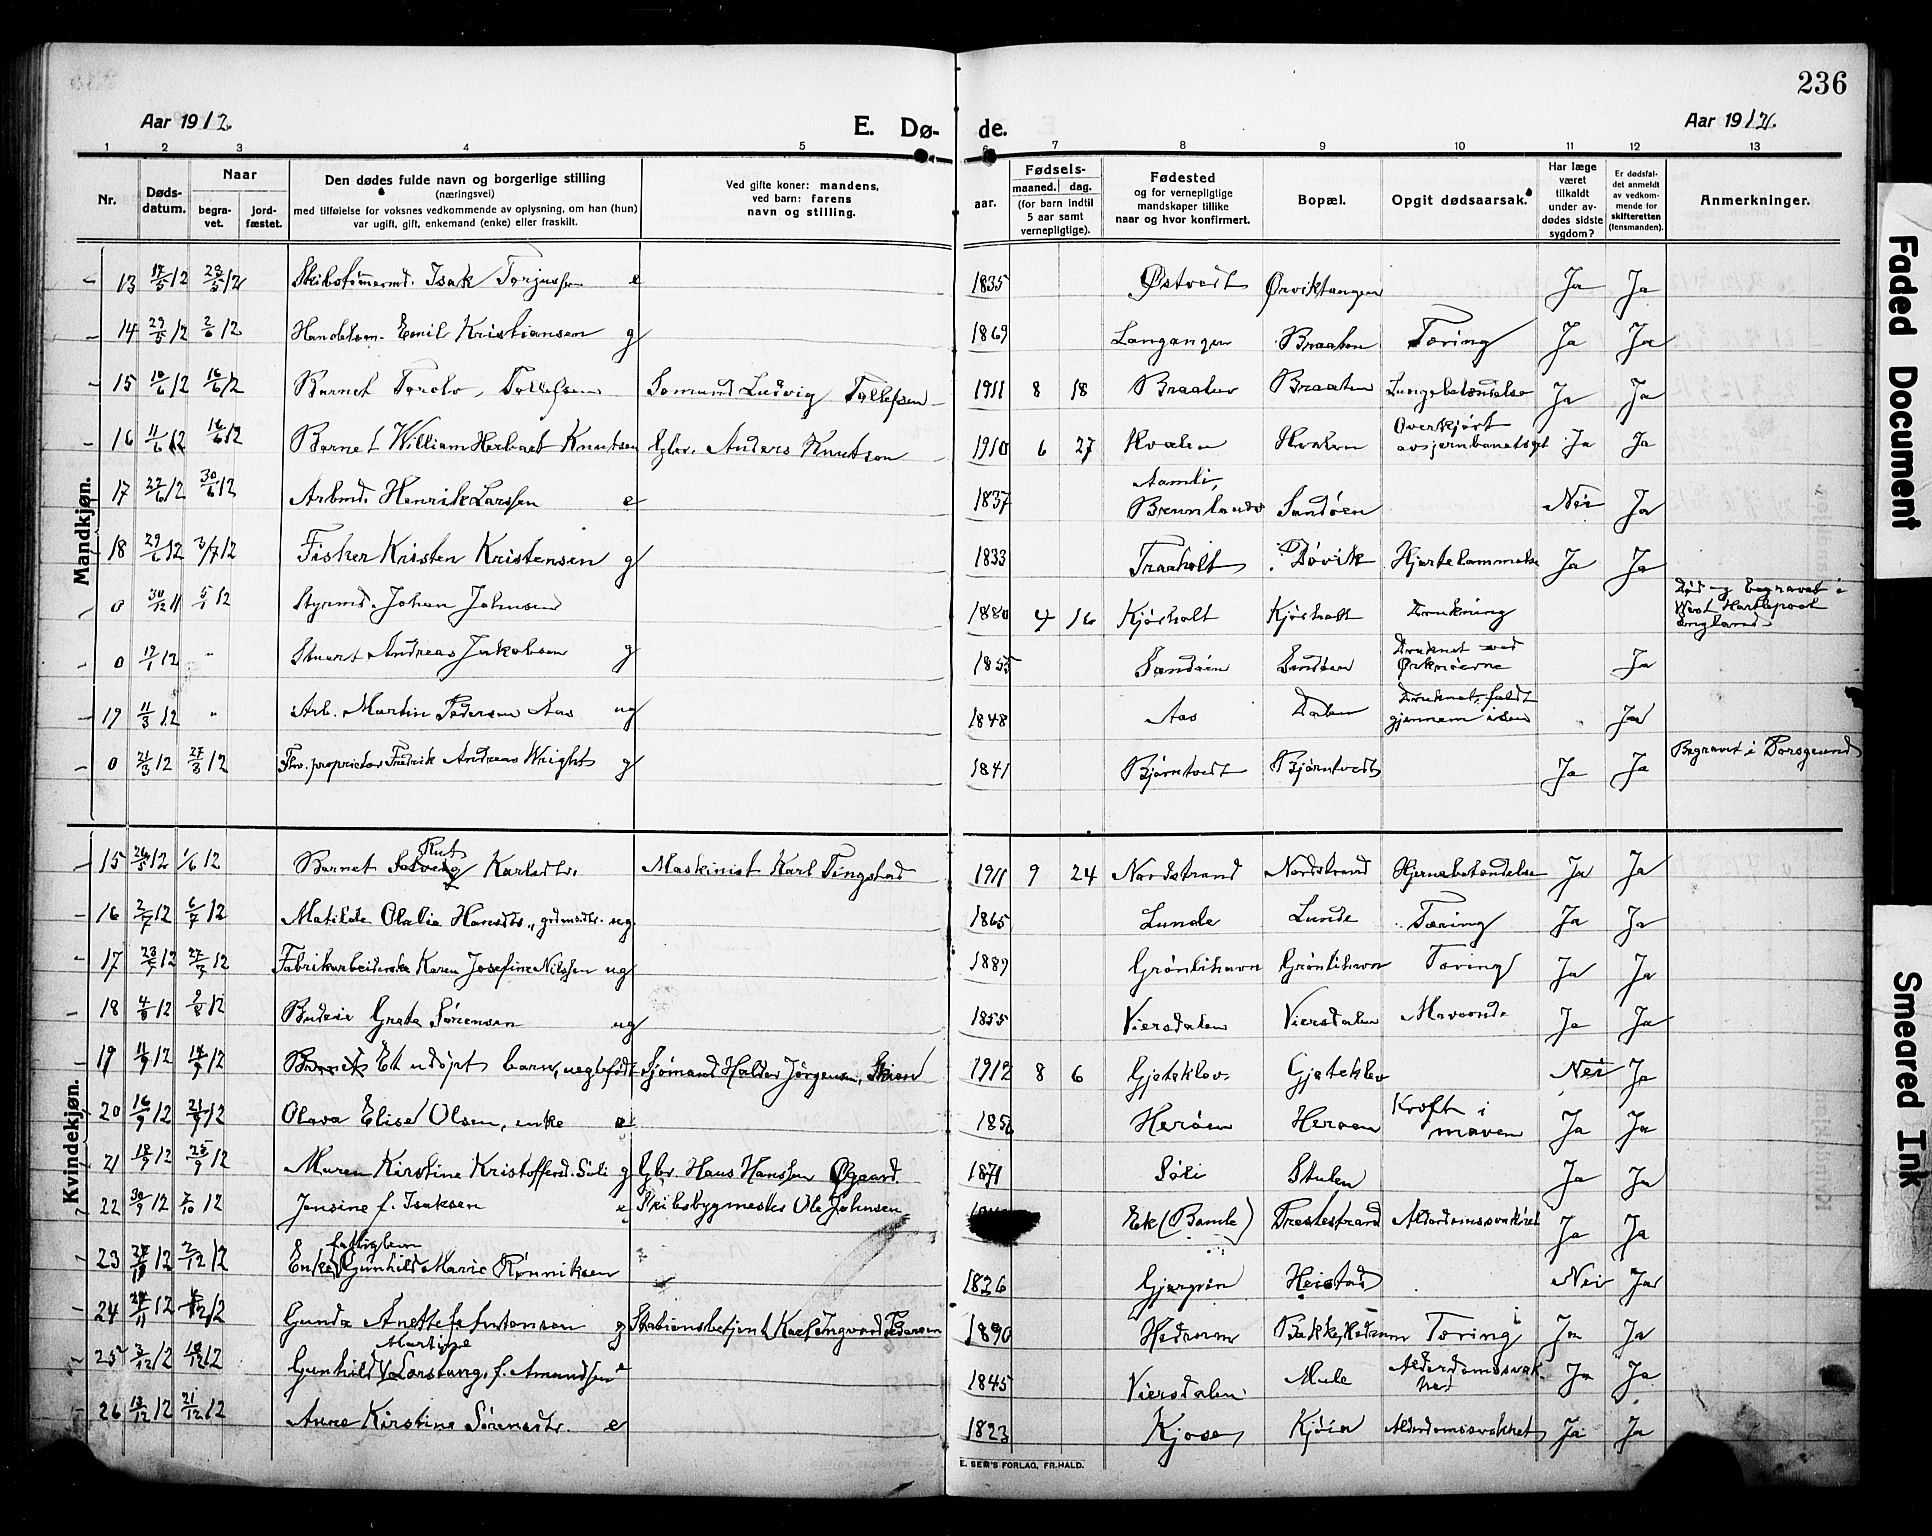 236
Aar 1912.
E. Dø-
de.
Aar 1912.
1 2 3 4 5 6 7 8 9 10 11 12 13
Nr.
Døds-
datum.
Naar
begra-
vet.
jord-
fæstet.
Den dødes fulde navn og borgerlige stilling
(næringsvei)
med tilføielse for voksnes vedkommende av oplysning, om han (hun)
var ugift, gift, enkemand (enke) eller fraskilt.
Ved gifte koner: mandens,
ved barn: farens
navn og stilling.
aar.
Fødsels-
maaned. dag.
(for barn indtil
5 aar samt
vernepligtige).
Fødested
og for vernepligtige
mandskaper tillike
naar og hvor konfirmert.
Bopæl.
Opgit dødsaarsak.
Har læge
været
tilkaldt
under av-
dødes sidste
sygdom?
Er dødsfal-
det anmeldt
av vedkom-
mende for
skifteretten
(lensmanden).
Anmerkninger.
Mandkjøn.
13 Isak Torjussen e 1835 Østvedt Ørviktangen Ja Ja
14 29/5 12 2/6 12 Emil Kristiansen g 1869 Langangen Braaten Tæring Ja Ja
15 16/6 12 Barnet Tollefsen Ludvig Tollefsen 1911 8 18 Braaten Braaten Lungebetændelse Ja Ja
16 11/6 12 16/6 12 Barnet William Herbart Knutsen Anders Knutson 1910 6 27 Kvalen Kvalen Overkjørt
av jernbanetoget Ja Ja
17 30/6 12 Arbmd. Henrik Larssen e 1837 Aamli, Sandøen Nei Ja
18 29/6 12 3/7 12 Fisker Kristen Kristensen g 1833 Traaholt Døvik Hjertelammelse Ja Ja
0 30/12 11 5/1 12 Styrmd. Johan Johnsen 1880 4 16 Kjørholt Kjørholt Drukning Død og begravet i
West Hartlepool
England
0 12 " Stuert Andreas Jakobsen g 1855 Sandøen Sandøen Druknet ved
Ørknøerne Ja
19 11/3 12 " Arb. Martin Pedersen Aas ug 1848 Aas Dalen Druknet, faldt
gjennem isen Ja
0 21/3 12 27/3 12 proprietær Fredrik Andreas Wright g 1841 Bjørntvedt Bjørntvedt Ja Ja Begravet i Porsgrund
Kvindekjøn.
15 26/5 12 1/6 12 Barnet Solveig Rut Karlsdtr. Maskinist Karl Tingstad 1911 9 24 Nordstrand Nordstrand Hjernebetændelse Ja Ja
16 2/7 12 6/7 12 Matilde Olalia Hansdtr., ug 1865 Lunde Lunde Tæring Ja Ja
17 23/7 12 27/7 12 Fabrikarbeiderske Karen Josefine Nilssen ug 1889 Grønlihavn Grønlihavn Tæring Ja Ja
18 4/8 12 9/8 12 Budeie Grete Sørensen ug 1855 Viersdalen Viersdalen Mavoonde Ja Ja
19 11/9 12 14/9 12 Barnet Et udøpt barn, uegtefødt Sjømand Halder Jørgensen, Skien 1912 8 6 Gjeteklev Gjeteklev Nei Ja
20 16/9 12 21/9 12 Olava Elise Olsen, enke e Herøen Herøen Kræft i
maven Ja Ja
21 18/9 12 25/9 12 Maren Kirstine Kristoffersd. Søli g Gbr. Hans Hanssen Øgaard. 1871 Søli Stulen Ja Ja
22 30/9 12 12 Jensine f. Isaksen e Skibsbygmester Ole Johnsen Eek (Bamle) Trostestrand Alderdomssvakhet Ja Ja
23 12 2/12 12 Enke fattiglem Gunhild Marie Rønniksen 1826 Gjerpen Heistad Nei Ja
24 12 12 Gunda Anette f. Antonsen g Stationsbetjent Karl Ingvard Pedersen 1890 Hedrum Bakke, Hedrum Tæring Ja Ja
25 2/12 12 12 Gunhild Martine Larstang, f. Amundsen e 1845 Viersdalen Mule Alderdomssvak-
het Ja Ja
26 13/12 12 21/12 12 Anne Kirstine Sørensdtr. e 1823 Kjose Kjøia Alderdomssvakhet Ja Ja
E. SEM'S FORLAG, FR.HALD.
Faded Document
Smeared Ink